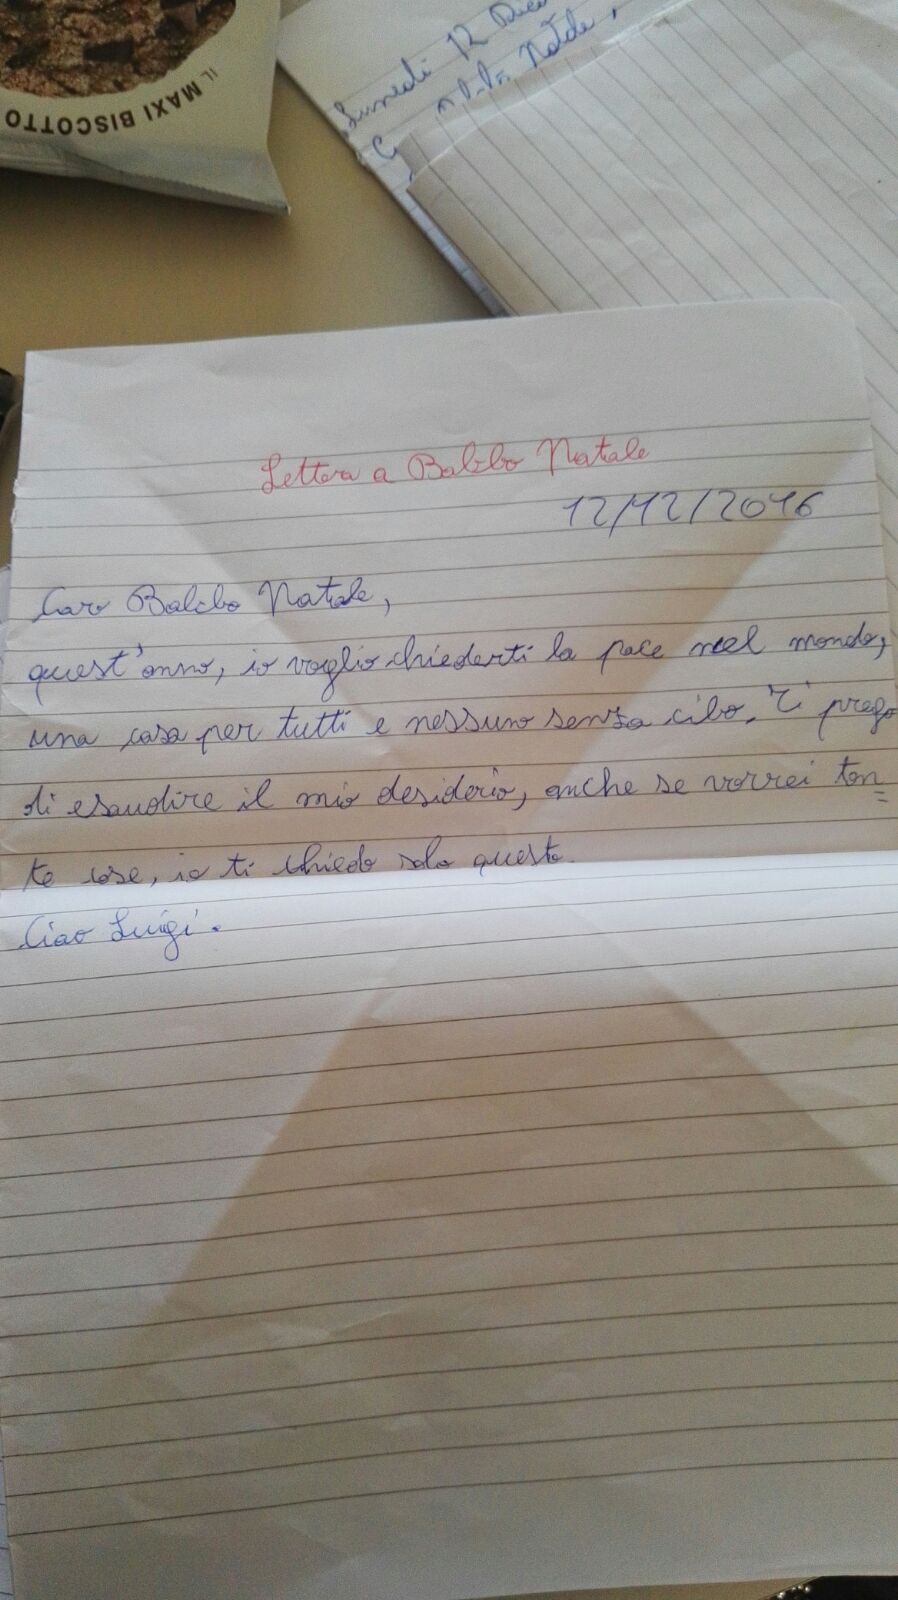 IL MAXI BISCOTTO
Lunedì 12
Natale,
Lettera a Babbo Natale
12/12/2016
Caro Babbo Natale,
quest'anno, io voglio chiederti la pace nel mondo,
una casa per tutti e nessuno senza cibo. Ti prego
di esaudire il mio desiderio, anche se vorrei tan=
te cose, io ti chiedo solo questo.
Ciao Luigi.